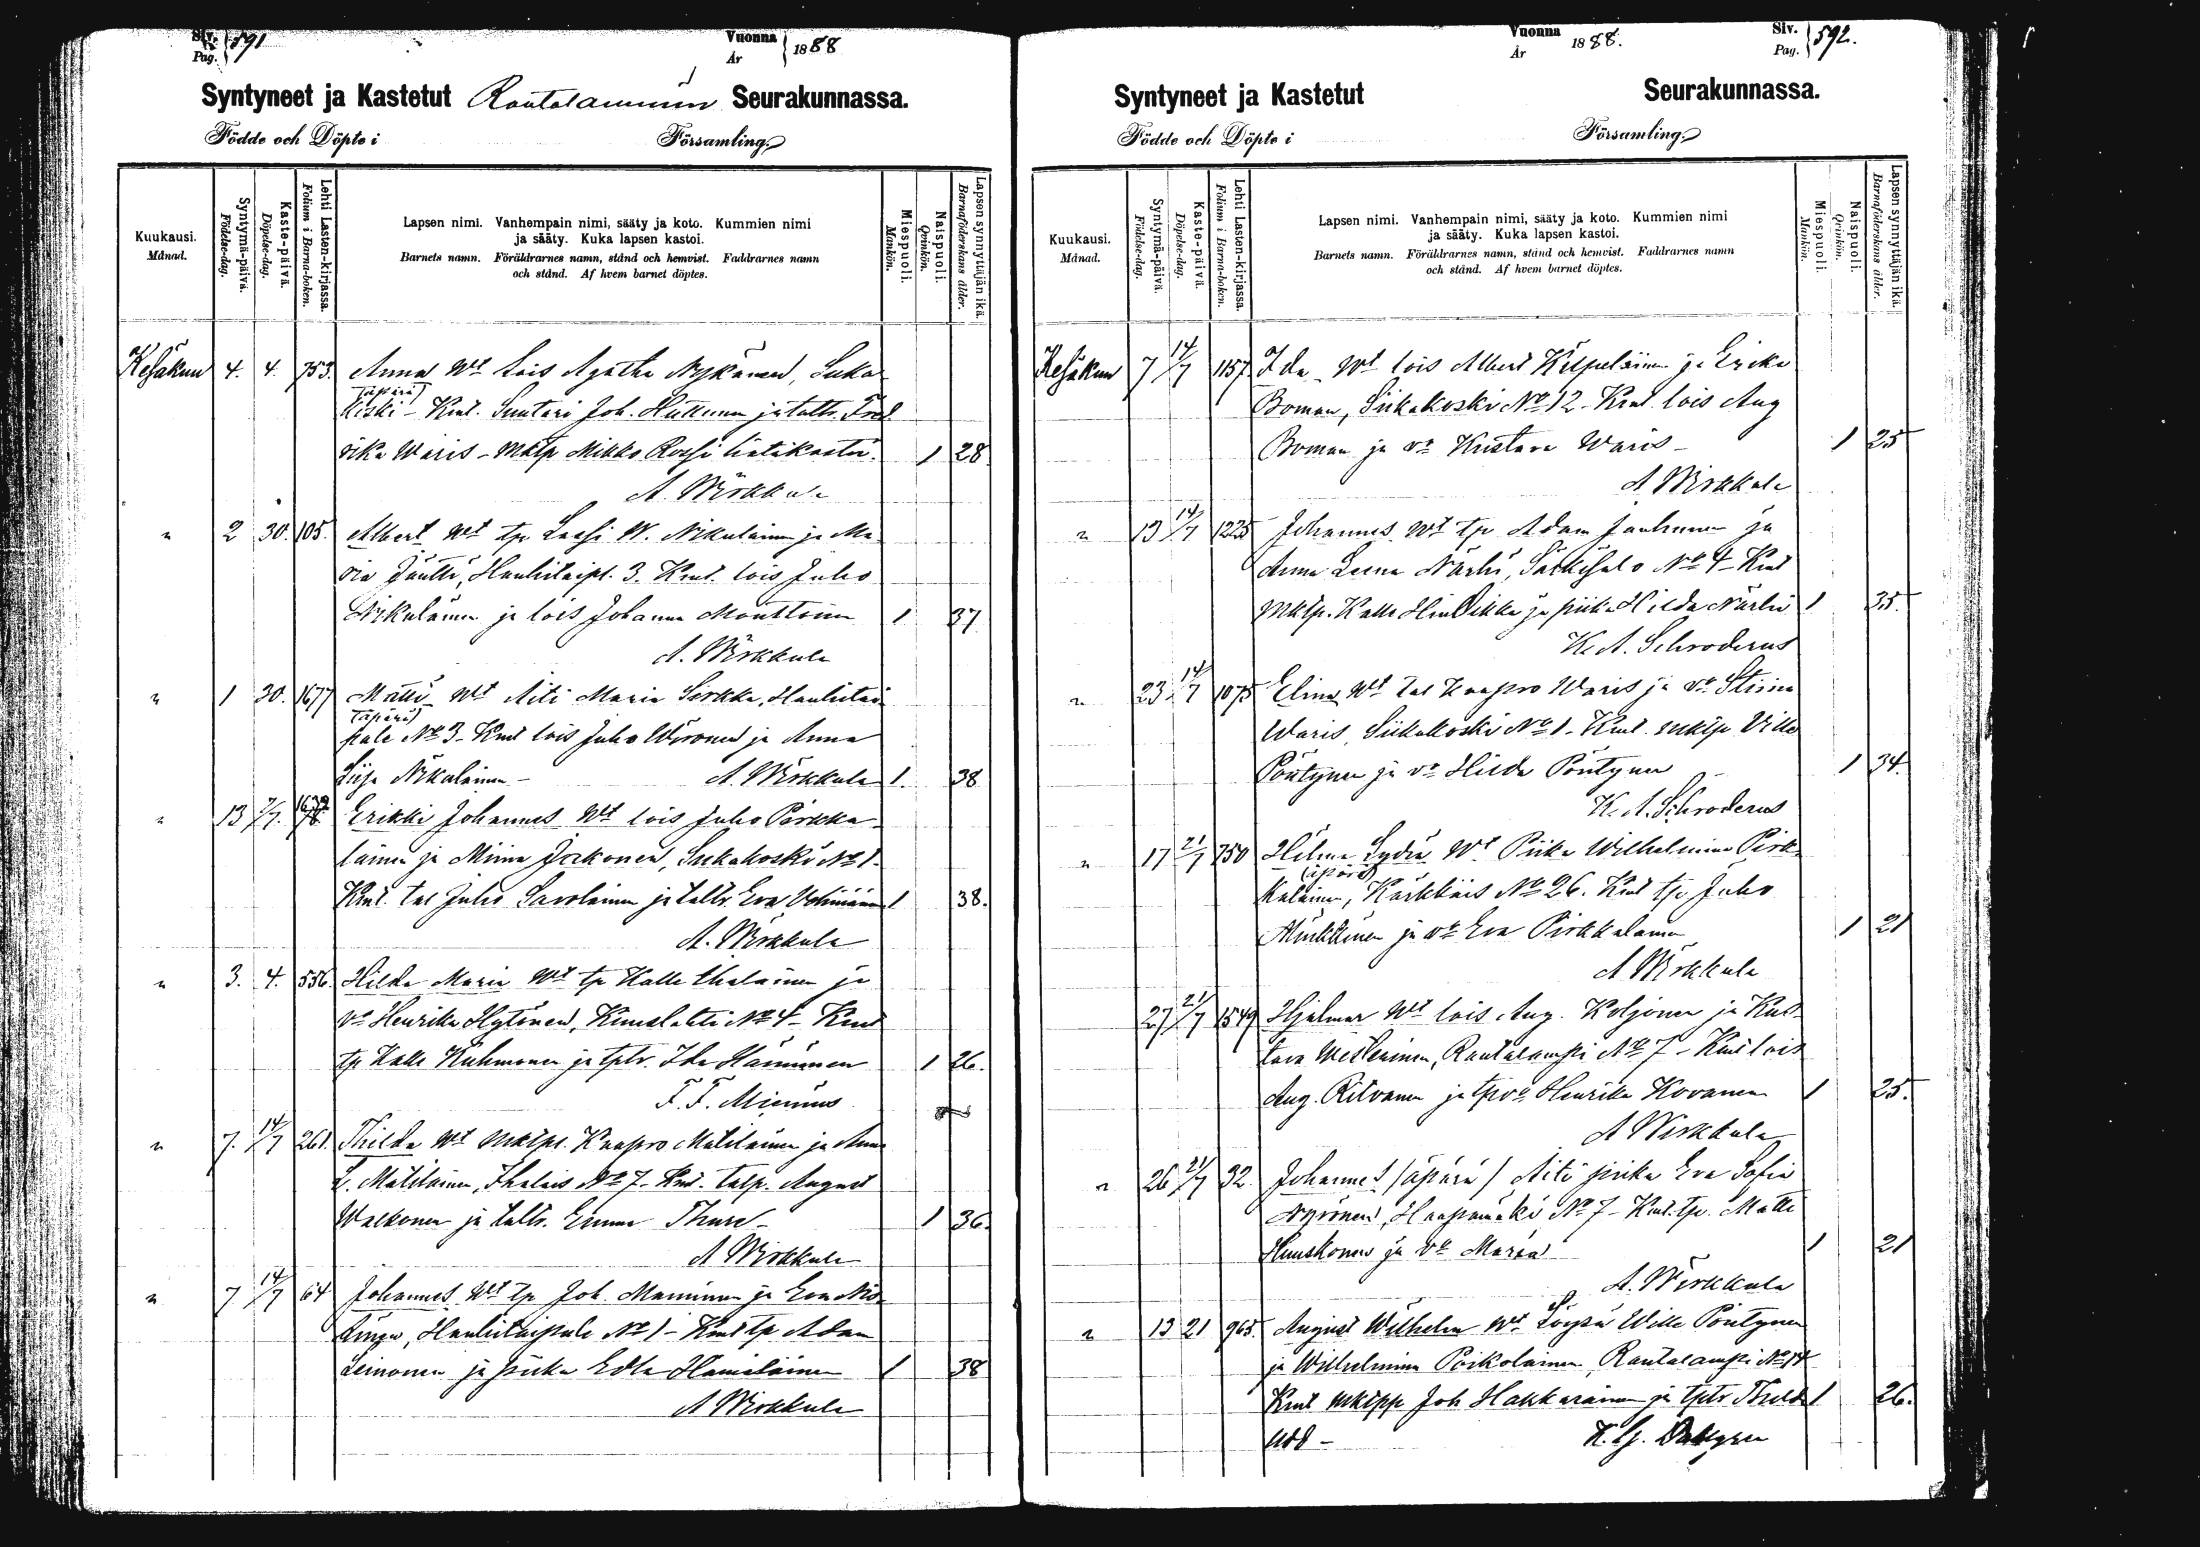 Siv. Pag. 591
Vuonna År 1888
Syntyneet ja Kastetut Rautalammin Seurakunnassa.
Födde och Döpte i Församling.
Kuukausi. Månad.
Syntymä-päivä. Födelse-dag.
Kaste-päivä. Döpelse-dag.
Lehti Lasten-kirjassa. Folium i Barna-boken.
Lapsen nimi. Vanhempain nimi, sääty ja koto. Kummien nimi
ja sääty. Kuka lapsen kastoi.
Barnets namn. Föräldrarnes namn, stånd och hemvist. Faddrarnes namn
och stånd. Af hvem barnet döptes.
Miespuoli. Mankön.
Naispuoli. Qvinkön.
Lapsen synnyttäjän ikä. Barnaföderskans ålder.
Kesäkuu 4. 4. 753. Anna Wt lois Agatha Nykänen,
(äpärä)
Kmt. Suutari Joh. Huttunen ja taltr. Fred
rika Waris - Mktp Mikko Rossi hätäkastoi. 1 28
A. Wirkkula
" 2 30. 105. Albert Wt tp Lassi W. Nikulainen ja Ma
ria Jäntti, Hankitaipl. 3. Kmt. lois Juho
Nikulainen ja lois Johanna 1 37
A. Wirkkula
" 1 30. 1677 Matti Wt Äiti Maria Serkka, Hankitai
(äpärä)
pale No 3 - Kmt lois Juho Wironen ja Anna
Liisa Nikulainen - A. Wirkkula 1. 38
" 13 7/7. 1632 78 Erikki Johannes Wt lois Juho Pirkka
lainen ja Miina Jalkonen, Siikakoski No 1.
Kmt. tal Juho Savolainen ja taltr. Eva 1 38.
A. Wirkkula
" 3. 4. 556. Hilda Maria Wt tp Kalle Ihalainen ja
vo Henrika Hytönen, Kimslahti No 4 - Kmt
tp Kalle Kuhmonen ja tptr. Ida Hänninen 1 26.
F. F. Miennius
" 7. 14/7 261. Thilda Wt Mktpl. Kaapro Matilainen ja Anna
L. Matilainen, Ihalais No 7 - Kmt. talp. August
Walkonen ja taltr. Emma Thure 1 36.
A Wirkkula
" 7 14/7 64 Johannes Wt tp Joh. Manninen ja Eva
Hankitaipale No 1 - Kmt tp Adam
Leinonen ja piika Edla Hämäläinen 1 38
A Wirkkula
Vuonna År 1888.
Siv. Pag. 592.
Syntyneet ja Kastetut Seurakunnassa.
Födde och Döpte i Församling.
Kuukausi. Månad.
Syntymä-päivä. Födelse-dag.
Kaste-päivä. Döpelse-dag.
Lehti Lasten-kirjassa. Folium i Barna-boken.
Lapsen nimi. Vanhempain nimi, sääty ja koto. Kummien nimi
ja sääty. Kuka lapsen kastoi.
Barnets namn. Föräldrarnes namn, stånd och hemvist. Faddrarnes namn
och stånd. Af hvem barnet döptes.
Miespuoli. Mankön.
Naispuoli. Qvinkön.
Lapsen synnyttäjän ikä. Barnaföderskans ålder.
Kesäkuu 7 14/7 1157 Ida Wt lois Albert Kilpeläinen ja Erika
Boman, Siikakoski No 12 - Kmt. lois Aug
Boman ja vo Kustava Waris - 1 25
A Wirkkula
" 13 14/7 1225 Johannes Wt tp Adam Jauhiainen ja
Anna Leena Närhi, Särkisalo No 4 Kmt
Mktp. Kalle Hindikka ja piika Hilda Närhi 1 35.
K. A. Schroderus
" 23. 14/7 1075 Elina Wt tal Kaapro Waris ja vo Stiina
Waris, Siikakoski No 1 - Kmt. mktp Ville
Pöntynen ja vo Hilda Pöntynen 1 34.
K. A. Schroderus
" 17 21/7 750 Hilma Lydia Wt Piika Wilhelmina Pirk
(äpärä)
kalainen, Kärkkäis No 26. Kmt tp Juho
Minkkinen ja vo Eva Pirkkalainen 1 21
A Wirkkula
27 21/7 1549 Hjalmar Wt lois Aug. Koljonen ja Kus
tava Westerinen, Rautalampi No 7 - Kmt lois
Aug. Ritvanen ja tpvo Henrika Kovanen 1 25.
A Wirkkula
" 26 21/7 32. Johannes (äpärä) Äiti piika Eva Sofia
Nyrönen, Haapamäki No 7 - Kmt. tp. Matti
Huuskonen ja vo Maria 1 21
A. Wirkkula
" 13 21 965. August Wilhelm Wt Löysä Wille Pöntynen
ja Wilhelmina Poikolainen Rautalampi No 14
Kmt mktpp Joh Hakkarainen ja tptr Thilda 1 26.
K. G. Dahlgren